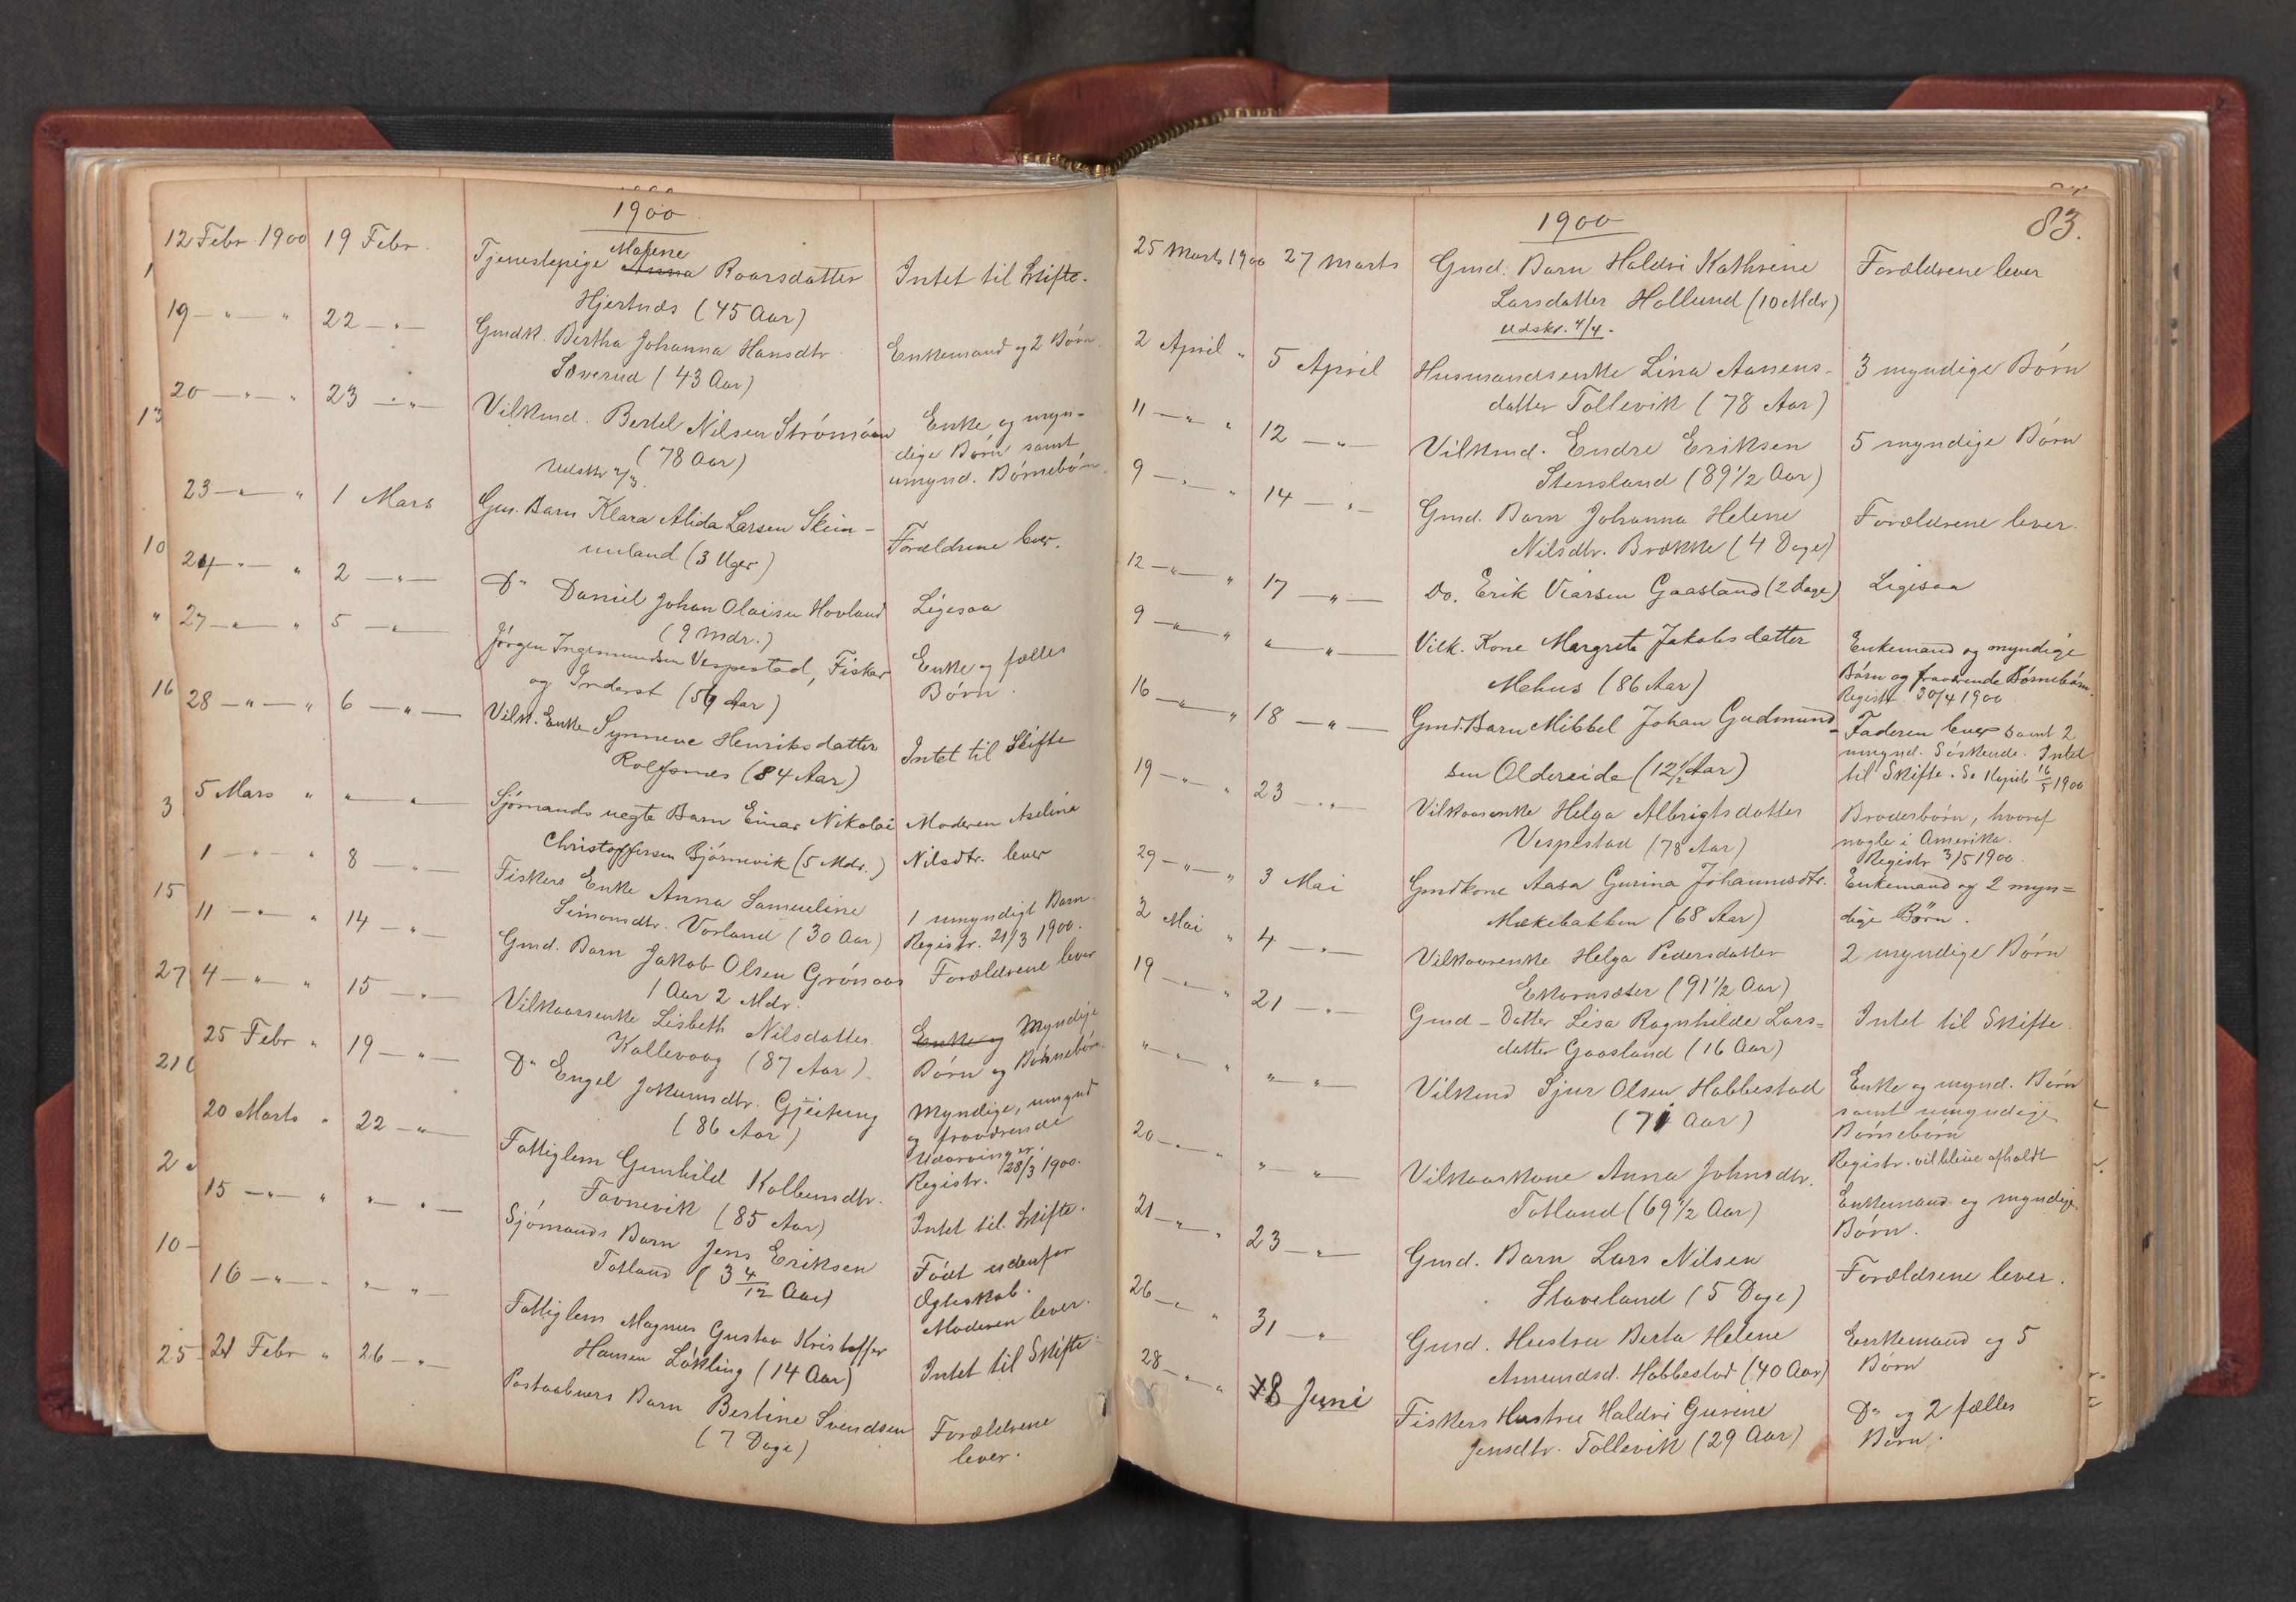 1900
12 Febr. 1900 19 Febr. Tjenestepige Malene
Anna Roarsdatter Intet til Skifte.
Hjertnæs (45 Aar)
19 — " — " 22 — " — Gmdk. Bertha Johanna Hansdtr. Enkemand og 2 Børn.
Sæverud (43 Aar)
20 — " — " 23 — " — Vilkmd. Bertel Nilsen Strömöen Enke og myn-
(78 Aar) dige Børn samt
Udskr 2/3. umynd. Børnebørn.
23 — " — " 1 Mars Gm. Barn Klara Alida Larsen Skim-
meland (3 Uger) Forældrene lever.
24 — " — " 2 — " — Do Daniel Johan Olaisen Hovland Ligesaa
(9 Mdr.)
27 — " — " 5 — " — Jörgen Ingemundsen Vespestad, Fisker Enke og fælles
og Inderst (56 Aar) Børn.
28 — " — " 6 — " — Vilk. Enke Synneve Henriksdatter Intet til Skifte
Rolfsnes (84 Aar)
5 Mars " " — " — Sjömands uegte Barn Einar Nikolai Moderen Aselina
Christoffersen Bjørnevik (5 Mdr.) Nilsdtr. lever
1 — " — " 8 — " — Fiskers Enke Anna Samueline 1 umyndigt Barn.
Simonsdtr. Vorland (30 Aar) Registr. 21/3 1900.
11 — " — " 14 — " — Gmd. Barn Jakob Olsen Grönaas Forældrene lever
1 Aar 2 Mdr.
4 — " — " 15 — " — Vilkaarsenke Lisbeth Nilsdatter Enke og Myndige
Kallevaag (87 Aar) Børn og Børnebørn.
25 Febr " 19 — " — Do Engel Jokumsdtr. Gjeitung Myndige, umynd
(86 Aar) og fraværende
Udarvinger.
Registr. 28/3 1900.
20 Marts " 22 — " — Fattiglem Gunhild Kolbensdtr. Intet til Skifte.
Favnevik (85 Aar)
15 — " — " " — " — Sjömands Barn Jens Eriksen Födt udenfor
Totland (3 4/12 Aar) Ægteskab.
Moderen lever.
16 — " — " " — " — Fattiglem Magnus Gustav Kristoffer
Hansen Lökling (14 Aar) Intet til Skifte
21 Febr " 26 — " — Postaabners Barn Bertine Svendsen Forældrene
(7 Dage) lever.
83.
1900
25 Marts 1900 27 Marts Gmd. Barn Haldri Kathrine Forældrene lever
Larsdatter Hollund (10 Mdr)
Udskr. 4/4.
2 April " 5 April Husmandsenke Lina Aanens- 3 myndige Børn
datter Tollevik (78 Aar)
11 — " " 12 — " — Vilkmd. Endre Eriksen 5 myndige Børn
Stensland (89 1/2 Aar)
9 — " — " 14 — " — Gmd. Barn Johanna Helene Forældrene lever.
Nilsdtr. Brække (4 Dage)
12 — " — " 17 — " — Do. Erik Viarsen Gaasland (2 Dage) Ligesaa
9 — " — " " — " — Vilk. Kone Margreta Jakobsdatter Enkemand og myndige
Mehus (86 Aar) Børn og fraværende Børnebørn.
Registr. 30/4 1900
16 — " — " 18 — " — Gmd. Barn Mikkel Johan Gudmund- Faderen lever samt 2
sen Oldereide (12 1/2 Aar) umynd. Søskende. Intet
til Skifte. Se Kopib 16/5 1900
19 — " — " 23 — " — Vilkaarsenke Helga Albrigtsdatter Broderbørn, hvoraf
Vespestad (78 Aar) nogle i Amerika.
Registr 3/5 1900.
29 — " — " 3 Mai Gmdkone Aasa Gurina Johannesdtr. Enkemand og 2 myn=
Mækebakken (68 Aar) dige Børn.
2 Mai " 4 — " — Vilkaarenke Helga Pedersdatter 2 myndige Børn
Ekornsæter (91 1/2 Aar)
19 — " — " 21 — " — Gmd - Datter Lisa Ragnhilde Lars= Intet til Skifte.
datter Gaasland (16 Aar)
" — " — " " — " — Vilkmd Sjur Olsen Habbestad Enke og mynd. Børn
(71 Aar) samt umyndige
Børnebørn
Registr. vil blive afholdt
20 — " — " " — " — Vilkaarskone Anna Johnsdtr. Enkemand og myndige
Totland (69 1/2 Aar) Børn.
21 — " — " 23 — " — Gmd. Barn Lars Nilsen Forældrene lever.
Staveland (5 Dage)
26 — " — " 31 — " — Gmd. Hustru Berta Helene Enkemand og 5
Amundsd. Habbestad (40 Aar) Børn
28 — " — " 8 Juni Fiskers Hustru Haldri Gurine Do og 2 fælles
Jensdtr. Tollevik (29 Aar) Børn.